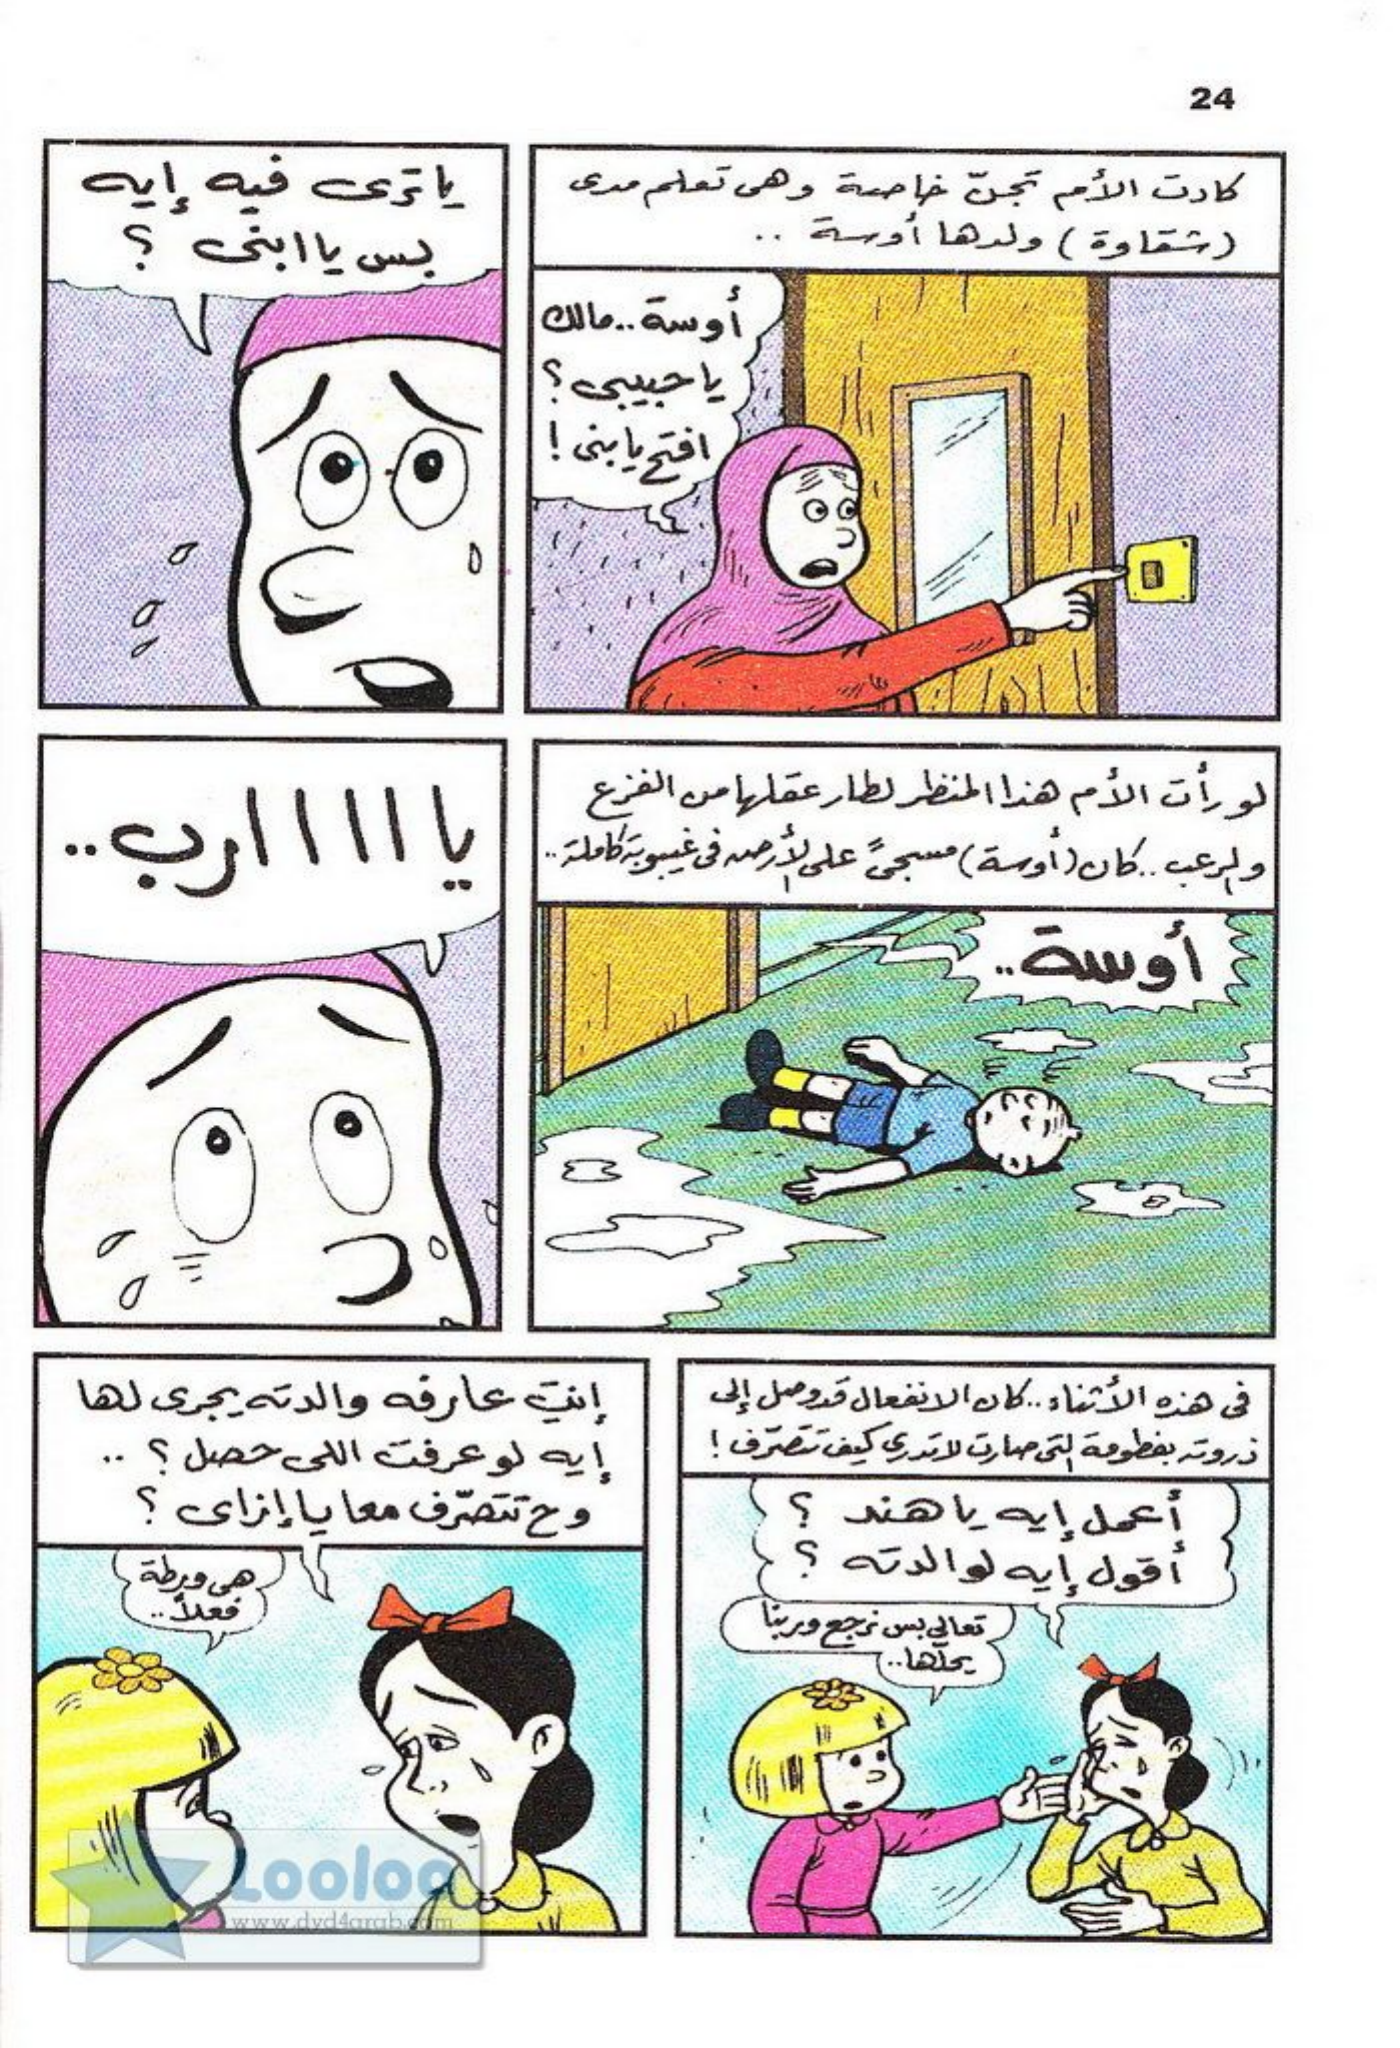 24
كادت الأم تجنّ خاصة وهى تعلم مدى
(شقاوة) ولدها أوسة ..
أوسة..مالك
يا حبيبى ؟
افتح يا بنى !
يا ترى فيه إيه
بس يا ابنى ؟
لو رأت الأم هذا المنظر لطار عقلها من الفزع
والرعب ..كان (أوسة) مسجىً على الأرض فى غيبوبة كاملة..
أوسة..
يا ا ا ا ا ارب..
فى هذه الأثناء..كان الانفعال قد وصل إلى
ذروته بفطومة التى صارت لا تدرى كيف تتصرّف !
أعمل إيه يا هند ؟
أقول إيه لوالدته ؟
تعالى بس نرجع وربنا
يحلّها..
إنتِ عارفه والدته يجرى لها
إيه لو عرفت اللى حصل ؟ ..
وح تتصرّف معايا إزاى ؟
هى ورطة
فعلاً..
Looloo
www.dvd4arab.com